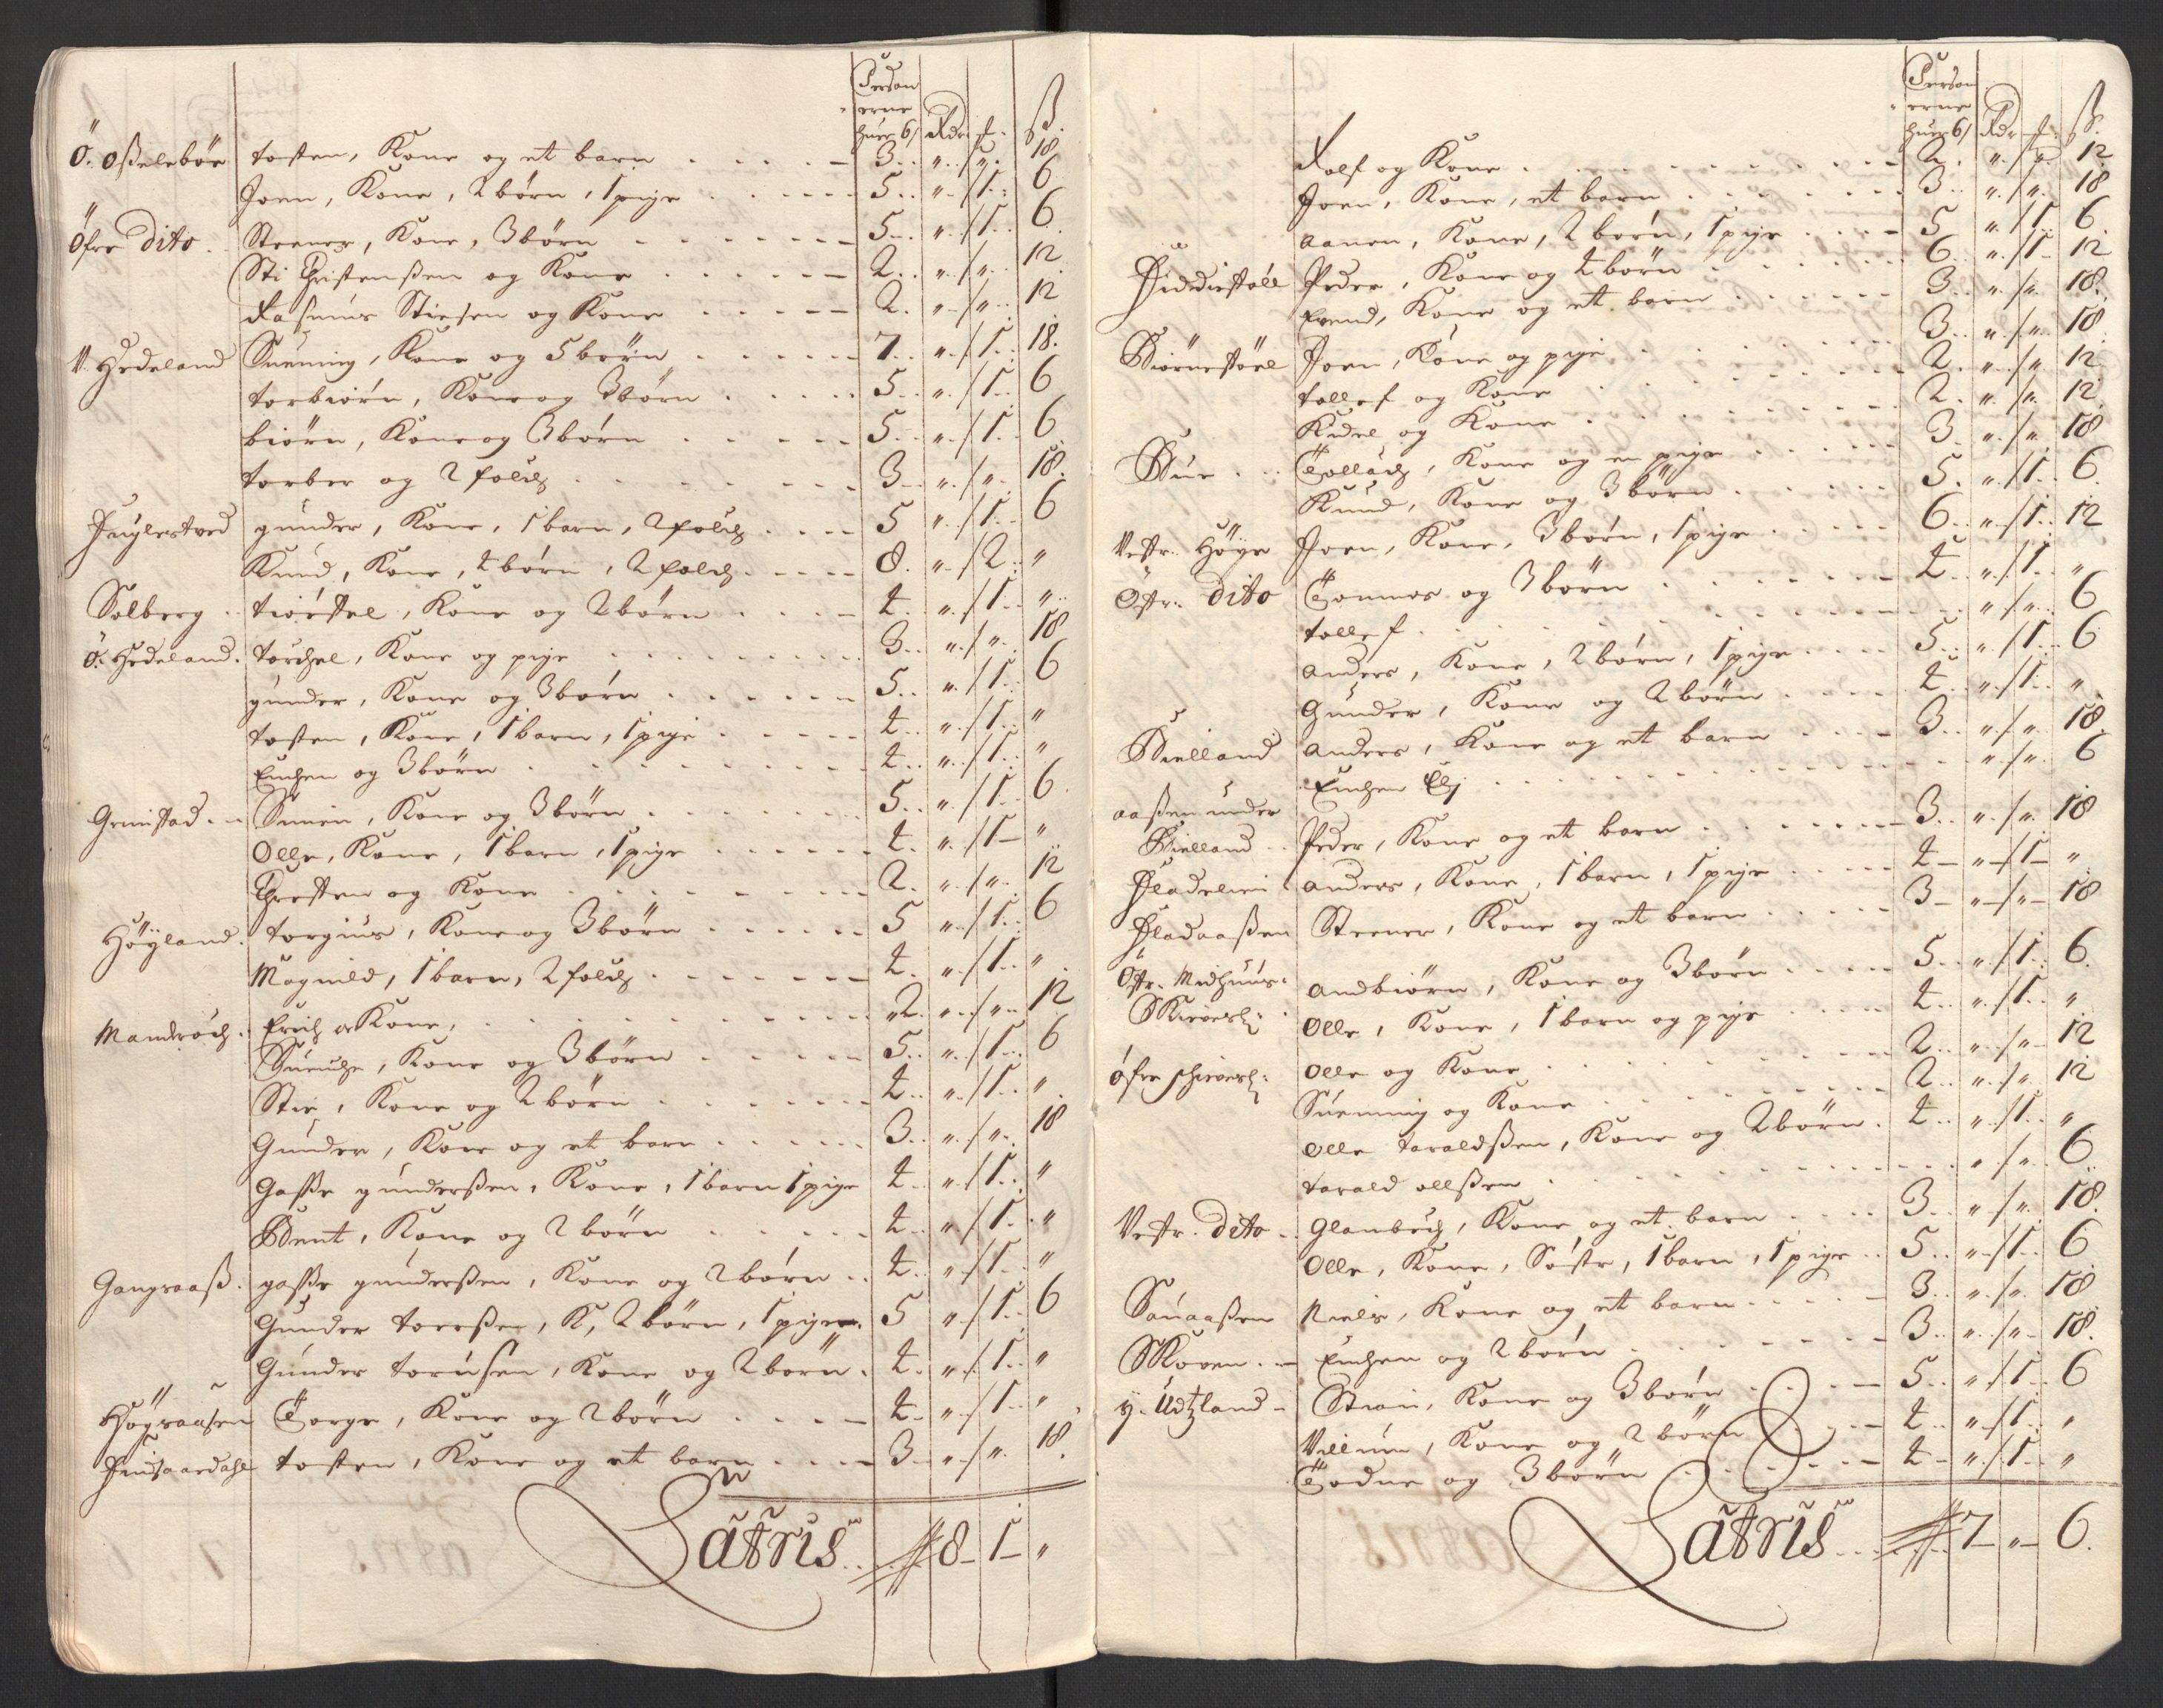 Person
erne
huer 6 / Rdr f. ß.
Ö. Oßelebøe tosten, Kone og et barn . . . . . 3 .. " .. / " .. 18
Joen, Kone, 2 børn, 1 pige . . . . . 5 .. " .. / 1 .. 6
Öfre Dito .. Steener, Kone, 3 børn . . . . . 5 .. " .. / 1 .. 6
Sti Christenßen og Kone . . . . . 2 .. " .. / " .. 12
Rasmus Stiesen og Kone . . . . . 2 .. " .. / " .. 12
V. Hedeland Suening, Kone og 5 børn . . . . . 7 .. " .. / 1 .. 18.
torbiørn, Kone og 3 børn . . . . . 5 .. " .. / 1 .. 6
biørn, Kone og 3 børn . . . . . 5 .. " .. / 1 .. 6
torber og 2 folch . . . . . 3 .. " .. / " .. 18.
gunder, Kone, 1 barn, 2 folch . . . . 5 " .. / 1 .. 6
Knud, Kone, 4 børn, 2 folch . . . . 8. " .. / 2 .. "
Solberg .. tiøstel, Kone og 2 børn . . . . 4. " .. / 1 .. "
Ö. Hedeland. torchel, Kone og pige . . . . . 3 .. " .. / " .. 18
gunder, Kone og 3 børn . . . . . 5 .. " .. / 1 .. 6
tosten, Kone, 1 barn, 1 pige . . . . . 4 .. " .. / 1 .. "
Enchen og 3 børn . . . . . 4 .. " .. / 1 .. "
Grimstad .. Simen, Kone og 3 børn . . . . . 5 .. " .. / 1 .. 6
Olle, Kone, 1 barn, 1 pige . . . . . 4. " .. / 1 – "
Chresten og Kone . . . . . 2. " .. / " .. 12
Höyland. torgius, Kone og 3 børn . . . . . 5 " .. / 1 .. 6
Magnild, 1 barn, 2 folch . . . . . 4. " .. / 1 .. "
Mandröch. Erich og Kone, . . . . . 2 .. " .. / " .. 12
Suenche, Kone og 3 børn . . . . . 5 .. " .. / 1 .. 6
Stie, Kone og 2 børn . . . . . 4 .. " .. / 1 .. "
Gunder, Kone og et barn . . . . . 3 .. " .. / " .. 18
Gaße gunderßen, Kone, 1 barn 1 pige 4 .. " .. / 1 .. "
Bent, Kone og 2 børn . . . . . 4 .. " .. / 1 .. "
Gangraaß. gaße gunderßen, Kone og 2 børn .. 4 .. " .. / 1 .. "
Gunder toerßen, K, 2 børn, 1 pige. 5 " .. / 1 .. 6
Gunder torusen, Kone og 2 børn . 4 .. " .. / 1 .. "
Högraasen Torge, Kone og 2 børn . . . . 4 .. " .. / 1 .. "
tosten, Kone og et barn . . . . 3 .. " .. / " .. 18.
Latris .. 8 – 1 – "
Person
erne
huer 6 / Rdr f. ß.
Rolf og Kone . . . . . 2. " .. / " .. 12
Joen, Kone, et barn . . . . . 3 .. " .. / " .. 18
aanen, Kone, 2 børn, 1 pige . . . . 5 " .. / 1 .. 6
Peder, Kone og 4 børn . . . . . 6 .. " .. / 1 – 12
Evend, Kone og et barn . . . . . 3 .. " .. / " .. 18.
Biørnestøel Joen, Kone og pige . . . . . 3 .. " .. / " .. 18
tollef og Kone . . . . . 2. " .. / " .. 12
Kidel og Kone . . . . . 2. " .. / " .. 12.
Bue .. Tollach, Kone og en pige . . . . . 3. " .. / " .. 18
Knud, Kone og 3 børn . . . . . 5. " .. / 1 .. 6.
Vestr. Höye Joen, Kone, 3 børn, 1 pige . . . . . 6 .. " .. / 1 .. 12
Östr. Dito Tommes og 3 børn . . . . . 4 .. " .. / 1 .. "
tollef . . . . . " .. / " .. 6
anders, Kone, 2 børn, 1 pige . . . . 5 .. " .. / 1 .. 6
Gunder, Kone og 2 børn . . . . 4 .. " .. / 1 .. "
Bielland anders, Kone og et barn . . . . 3 .. " .. / " .. 18.
Enchen Elj . . . . . " .. / " .. 6
aaßen under
Bielland .. Peder, Kone og et barn . . . . . 3 .. " .. / " .. 18
anders, Kone, 1 barn, 1 pige . . . . 4 – " – / 1 – "
Steener, Kone og et barn . . . . . 3 – " – / " – 18
Östr. Midhuus. andbiørn, Kone og 3 børn . . . . . 5 .. " .. / 1 .. 6.
Olle, Kone, 1 barn og pige . . . . 4 .. " .. / 1 .. "
olle og Kone . . . . . 2 .. " .. / " – 12
Suening og Kone . . . . . 2 .. " .. / " .. 12
Olle taraldßen, Kone og 2 børn . 4 .. " .. / 1 .. "
tarald ollßen . . . . . " .. / " .. 6
Vestr. Dito .. Glambech, Kone og et barn . . . . 3 .. " .. / " .. 18.
Olle, Kone, Søstr, 1 barn, 1 pige .. 5 .. " – / 1 .. 6
Sauaaßen Niels, Kone og et barn . . . . . 3 .. " .. / " .. 18
Skoven .. – Enchen og 2 børn . . . . . 3 .. " .. / " – 18.
y. Udtzland – Stian, Kone og 3 børn . . . . 5 .. " .. / 1 .. 6
Villum, Kone og 2 børn . . . . 4 .. " .. / 1 .. "
Todne og 3 børn . . . . . 4 – " .. / 1 .. "
Latris .... 7 – " – 6.